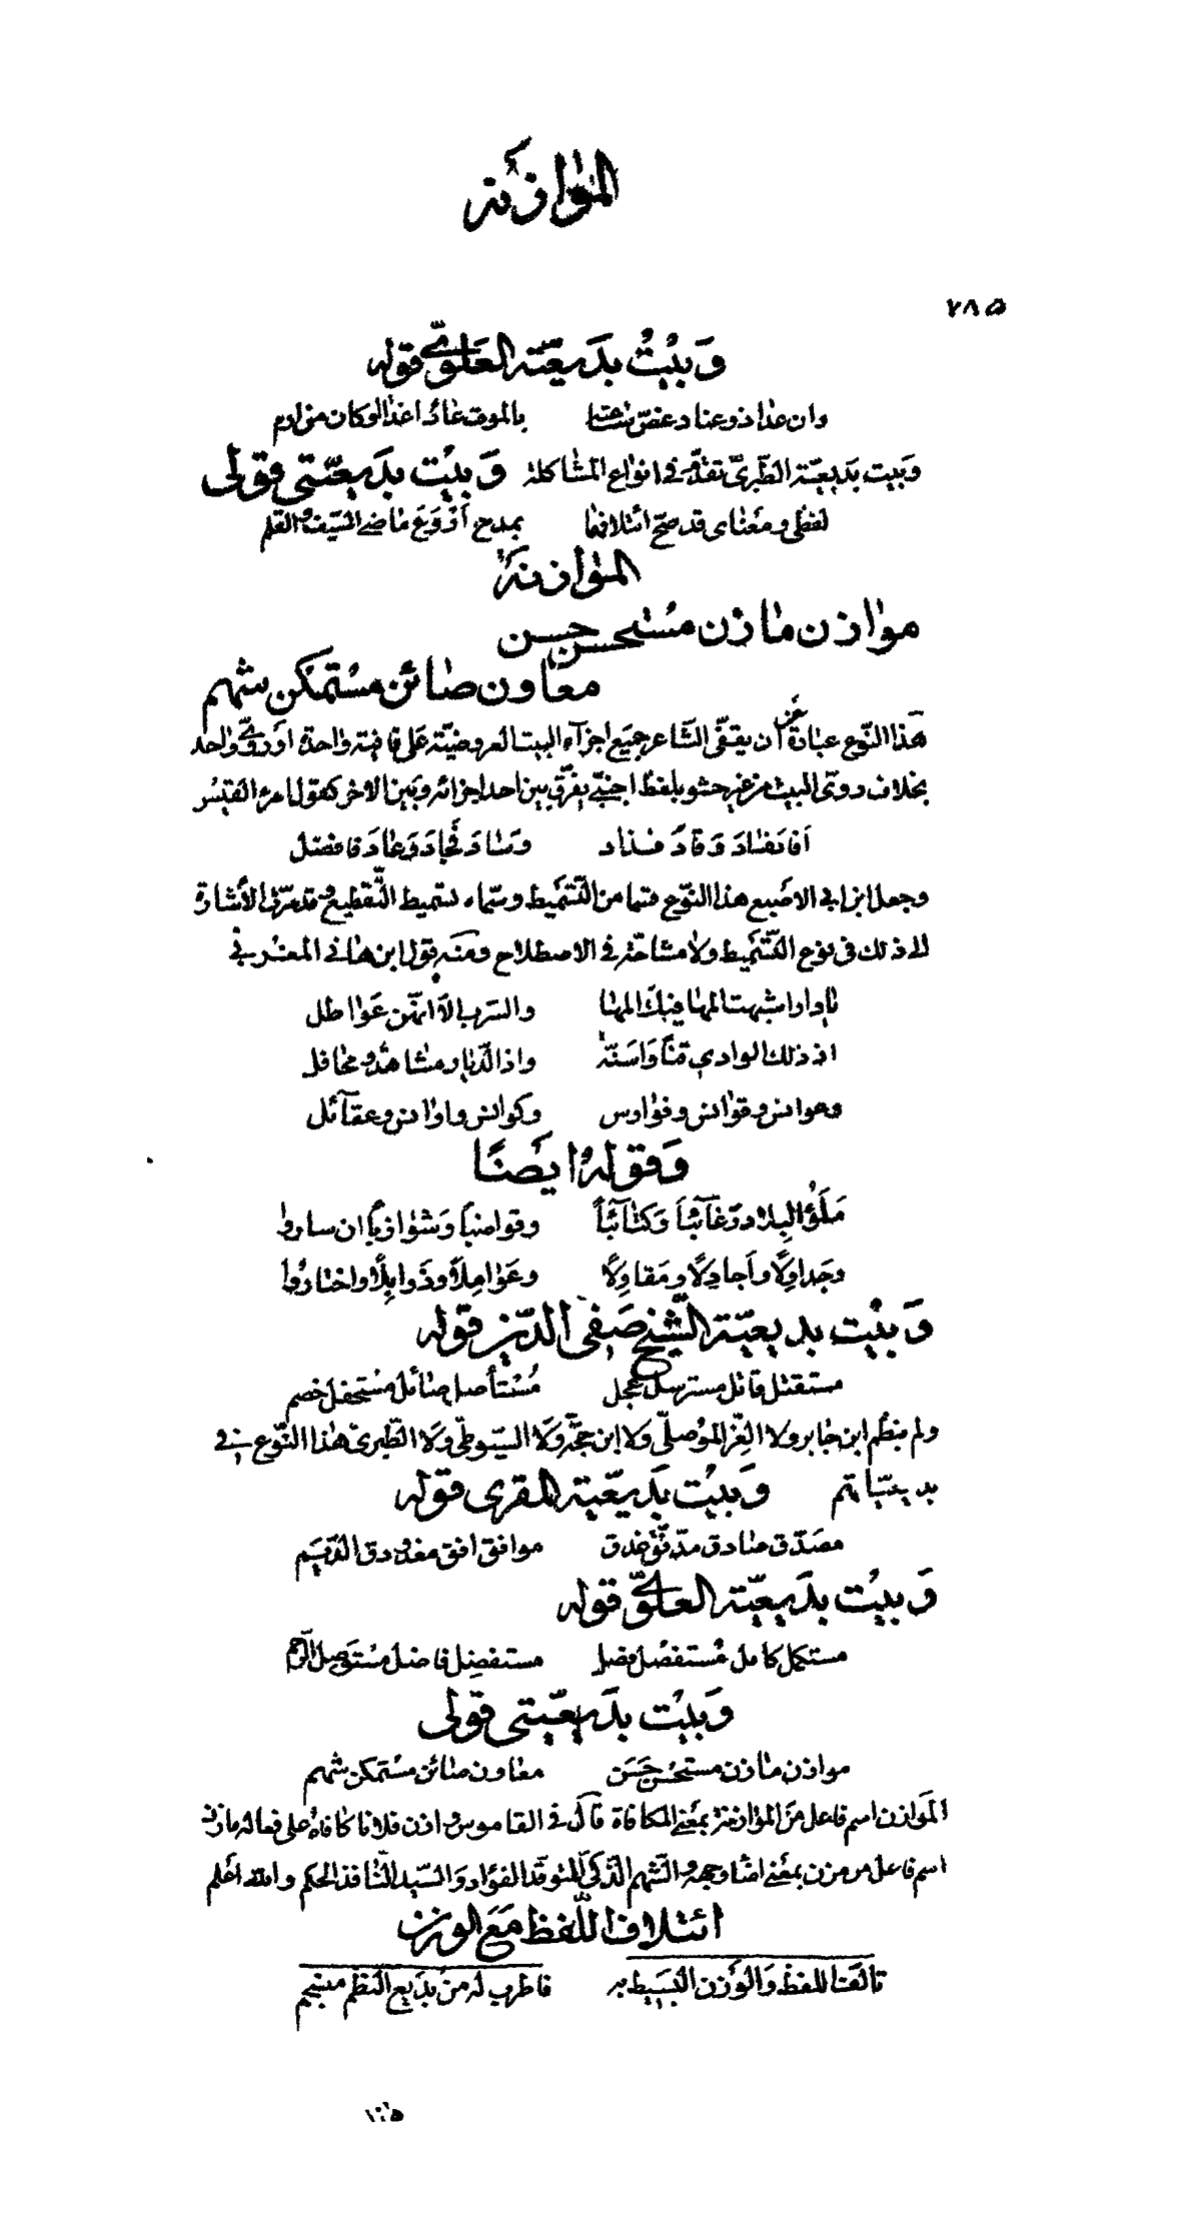 الموازنة
٧٨٥
وَبَيْتُ بَدِيعيّة العَلويّ قوله
وان غدا ذو عناد بالموت عاد اغذا لو كان من ادم
وَبيت بَديعيّة الطّبريّ تقدّم في انواع المشاكلة وَبيْت بَديعيّتي قولى
لفظى ومَعْناى قد صحّ ائتلافهما بمدح أرْوَعَ ماضي السّيف والقلم
الموازنة
موازن مازن مُستحسن حسن
معاون صائن مسْتمكن شهم
هَذا النّوع عبارة عن أن يقفّى الشّاعر جميع اجزآء البيت العروضيّة عَلى قافية واحدة اوْ رويّ واحد
بخلاف روىّ البيت من غير حشو بلفظ اجنبيّ يفرّق بين احد اجزائه وبين الاخر كقول امرء القيْس
أفَادَ فَسَادَ وَقادَ فذاد وَشادَ فجادَ وَعادَ فافضل
وجعل ابن ابى الاصْبع هذا النّوع قسما من التّسْميط وسمّاه تسميط التّقطيع وقد مرّت الأشارة
الى ذلك فى نوع التّسْميط ولا مشاحّة فى الاصطلاح ومنه قول ابن هانى المغربى
يادار اشبهت المها فيك المها والسّرب الاّ انّهنّ عَواطل
اذ ذلك الوادي قنًا وَاسنّة واذا الدّيار مشاهدٌ ومحافل
وعوابس وقوانس وفوارس وكوانس واوانس وعقآئل
وَقوله ايضًا
مَلَؤُا البِلاد رَغآئبًا وَكتآئبًا وقواضبًا وَشوازبًا ان ساروا
وجَداوِلًا وأجادِلًا ومَقاوِلًا وعَوامِلًا وذَوابِلًا واختارُوا
وَبَيْت بديعيّة الشّيخ صَفى الدّين قوله
مستقتل قاتل مسترسل عجل مُسْتأصل صائل مسْتحفل خصم
ولم ينظم ابن جابر ولا العِزّ الموصلّي وَلا ابن حجّة وَلا السّيوطّي وَلا الطّبرىّ هذا النّوع فى
بديعيّاتهم وَبَيْت بَديعّية المقرى قوله
مصَدّق صادق موافق افق
وَبيْت بَديعيّة العلويّ قوله
مستكمل كامل مُستفضل فضل مستفضِل فاضل
وَبَيْت بَديعيّتي قولى
موازن مازن مستحْسن حَسَن معاون صائن مسْتمكن شهم
المَوازن اسم فاعل من الموازنة بمعْنى المكافاة قالَ فى القاموس وازن فلانا كافاهُ على فعاله مازن
اسم فاعل من مزن بمعْنى اضا وجهه والشّهم الذّكىّ المتوقّد الفؤاد وَالسّيّد النّافذ الحكم والله أعلم
ائتلاف اللّفظ مَعَ الوزن
تألّف اللفظ وَالوَزن البَسيط به فاطرب له من بَديع النظم منسجم